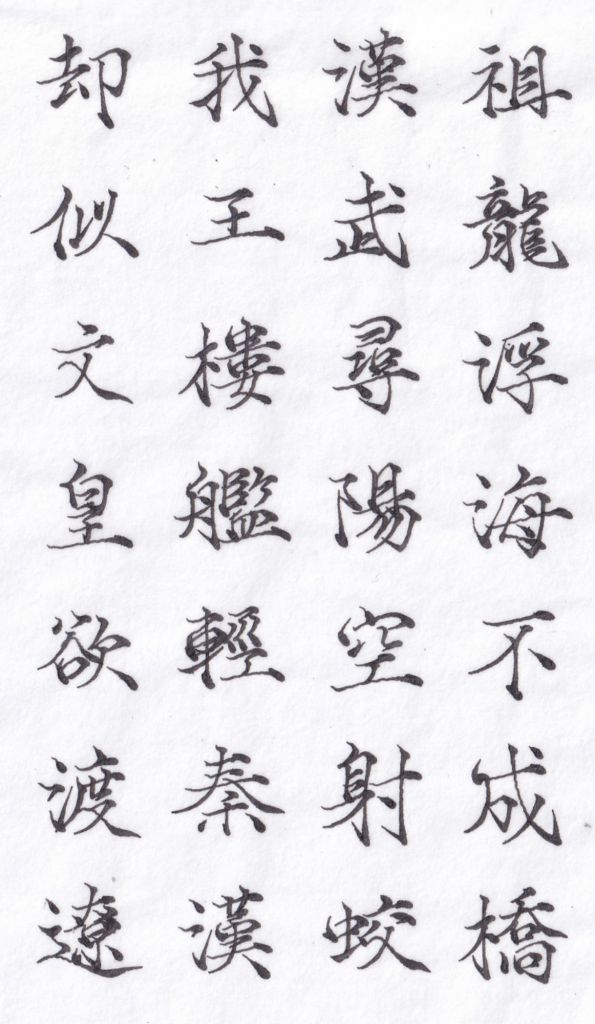 祖龍浮海不成橋
漢武尋陽空射蛟
我王樓艦輕秦漢
却似文皇欲渡遼